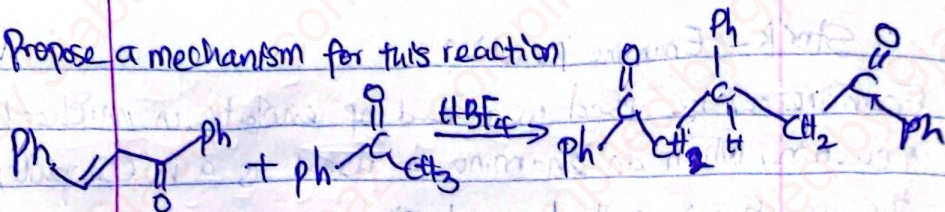 Propose a mechanism for this reaction
Ph O
Ph O Ph + Ph C CH3 HBF4 Ph C CH2 C H CH2 C O Ph